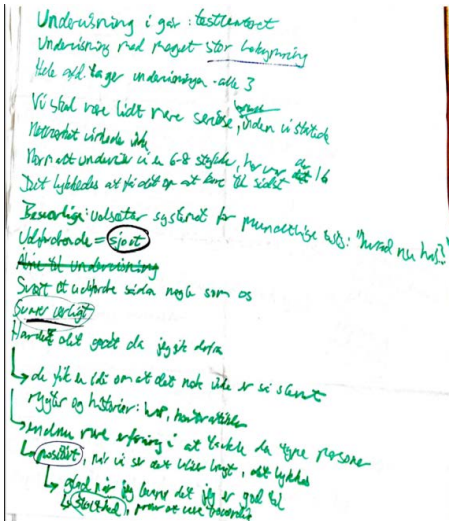 Undervisning i går: testcenteret
Undervisning med meget stor bekymring
Hele afd. tager undervisningen - alle 3
Vi skal være lidt mere seriøse, inden vi startede
Netværket virkede ikke
Normalt underviser vi en 6-8 stykker, her var 16
Det lykkedes at få det op at køre til sidst
Besværlige: udsætter systemet for mundtlige "hvad nu hvis?"
Udfordrende = sjovt
til undervisning
Svært at udfordre sådan nogle som os
Svarer ærligt
Havde det godt da jeg gik derfra
de fik en idé om at det nok ikke er så slemt
rygter og historier:
endnu mere erfaring i at tackle den type personer
positivt, når vi ser det lykkes
glad når jeg det jeg er god til
stolthed, at